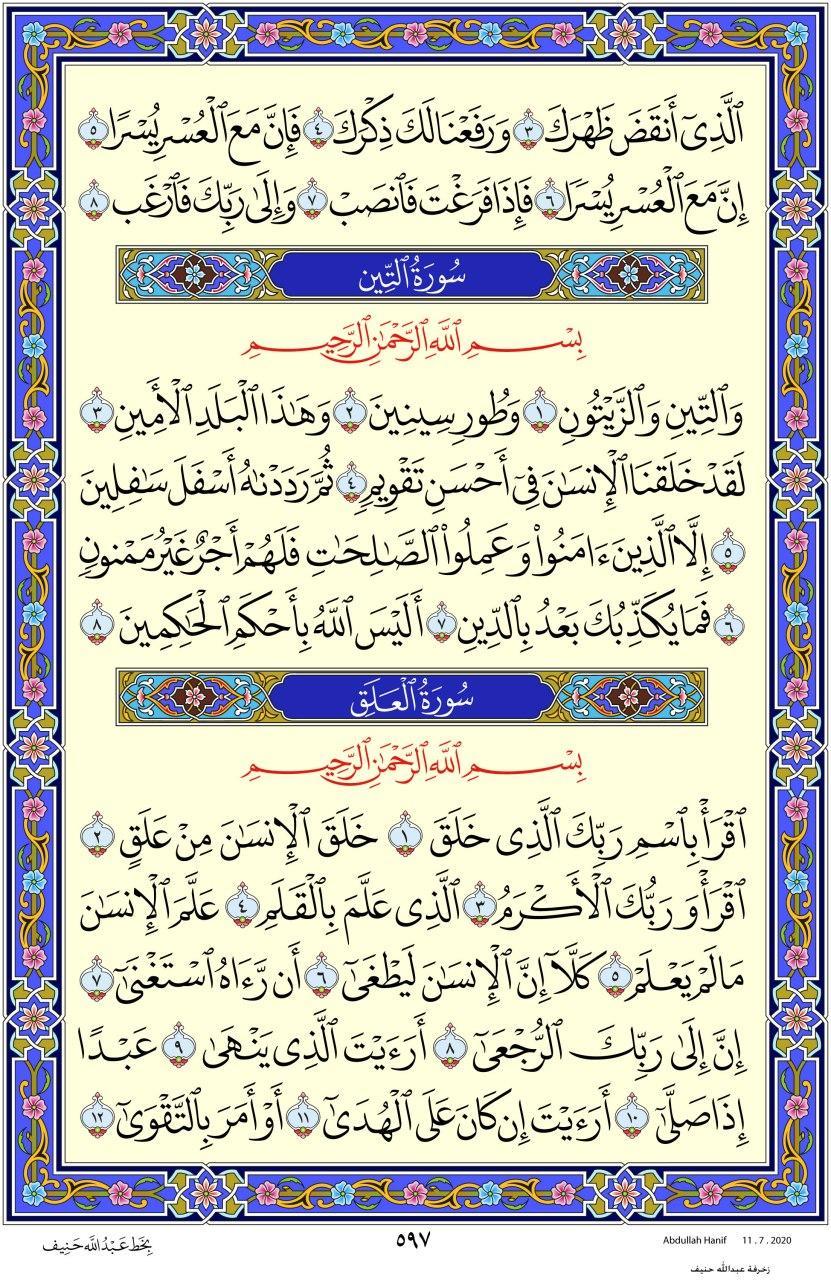 ٱلَّذِىٓ أَنقَضَ ظَهْرَكَ ٣ وَرَفَعْنَا لَكَ ذِكْرَكَ ٤ فَإِنَّ مَعَ ٱلْعُسْرِ يُسْرًا ٥
إِنَّ مَعَ ٱلْعُسْرِ يُسْرًا ٦ فَإِذَا فَرَغْتَ فَٱنصَبْ ٧ وَإِلَىٰ رَبِّكَ فَٱرْغَب ٨
سُورَةُ ٱلتِّين
بِسْمِ ٱللَّهِ ٱلرَّحْمَٰنِ ٱلرَّحِيمِ
وَٱلتِّينِ وَٱلزَّيْتُونِ ١ وَطُورِ سِينِينَ ٢ وَهَٰذَا ٱلْبَلَدِ ٱلْأَمِينِ ٣
لَقَدْ خَلَقْنَا ٱلْإِنسَٰنَ فِىٓ أَحْسَنِ تَقْوِيمٍ ٤ ثُمَّ رَدَدْنَٰهُ أَسْفَلَ سَٰفِلِينَ
٥ إِلَّا ٱلَّذِينَ ءَامَنُوا۟ وَعَمِلُوا۟ ٱلصَّٰلِحَٰتِ فَلَهُمْ أَجْرٌ غَيْرُ مَمْنُونٍ
٦ فَمَا يُكَذِّبُكَ بَعْدُ بِٱلدِّينِ ٧ أَلَيْسَ ٱللَّهُ بِأَحْكَمِ ٱلْحَٰكِمِينَ ٨
سُورَةُ ٱلْعَلَقِ
بِسْمِ ٱللَّهِ ٱلرَّحْمَٰنِ ٱلرَّحِيمِ
ٱقْرَأْ بِٱسْمِ رَبِّكَ ٱلَّذِى خَلَقَ ١ خَلَقَ ٱلْإِنسَٰنَ مِنْ عَلَقٍ ٢
ٱقْرَأْ وَرَبُّكَ ٱلْأَكْرَمُ ٣ ٱلَّذِى عَلَّمَ بِٱلْقَلَمِ ٤ عَلَّمَ ٱلْإِنسَٰنَ
مَا لَمْ يَعْلَمْ ٥ كَلَّآ إِنَّ ٱلْإِنسَٰنَ لَيَطْغَىٰٓ ٦ أَن رَّءَاهُ ٱسْتَغْنَىٰٓ ٧
إِنَّ إِلَىٰ رَبِّكَ ٱلرُّجْعَىٰٓ ٨ أَرَءَيْتَ ٱلَّذِى يَنْهَىٰ ٩ عَبْدًا
إِذَا صَلَّىٰٓ ١٠ أَرَءَيْتَ إِن كَانَ عَلَى ٱلْهُدَىٰٓ ١١ أَوْ أَمَرَ بِٱلتَّقْوَىٰٓ ١٢
بِخَطِّ عَبْدُ اللَّه حَنِيف
٥٩٧
Abdullah Hanif 11 . 7 . 2020
زخرفة عبدالله حنيف